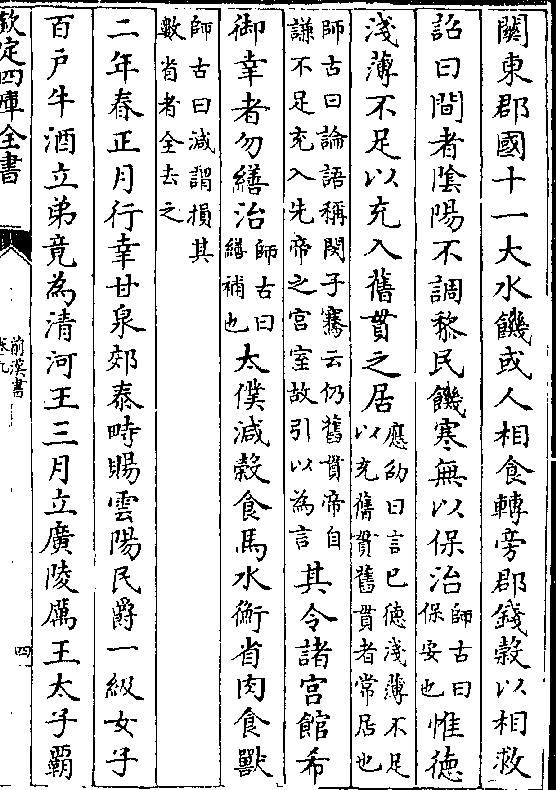 關東郡國十一大水饑或人相食轉旁郡錢榖以相救
詔曰間者陰陽不調黎民饑寒無以保治師古曰保安也惟徳
淺薄不足以充入舊貫之居應劭曰言已徳淺薄不足以充舊貫舊貫者常居也
師古曰論語稱閔子騫云仍舊貫帝自謙不足充入先帝之宫室故引以為言其令諸宫館希
御幸者勿繕治師古曰繕補也太僕減榖食馬水衡省肉食獸
師古曰減謂損其數省者全去之
二年春正月行幸甘泉郊泰畤賜雲陽民爵一級女子
百户牛酒立弟竟為清河王三月立廣陵厲王太子霸
欽定四庫全書
前漢書
卷九
四